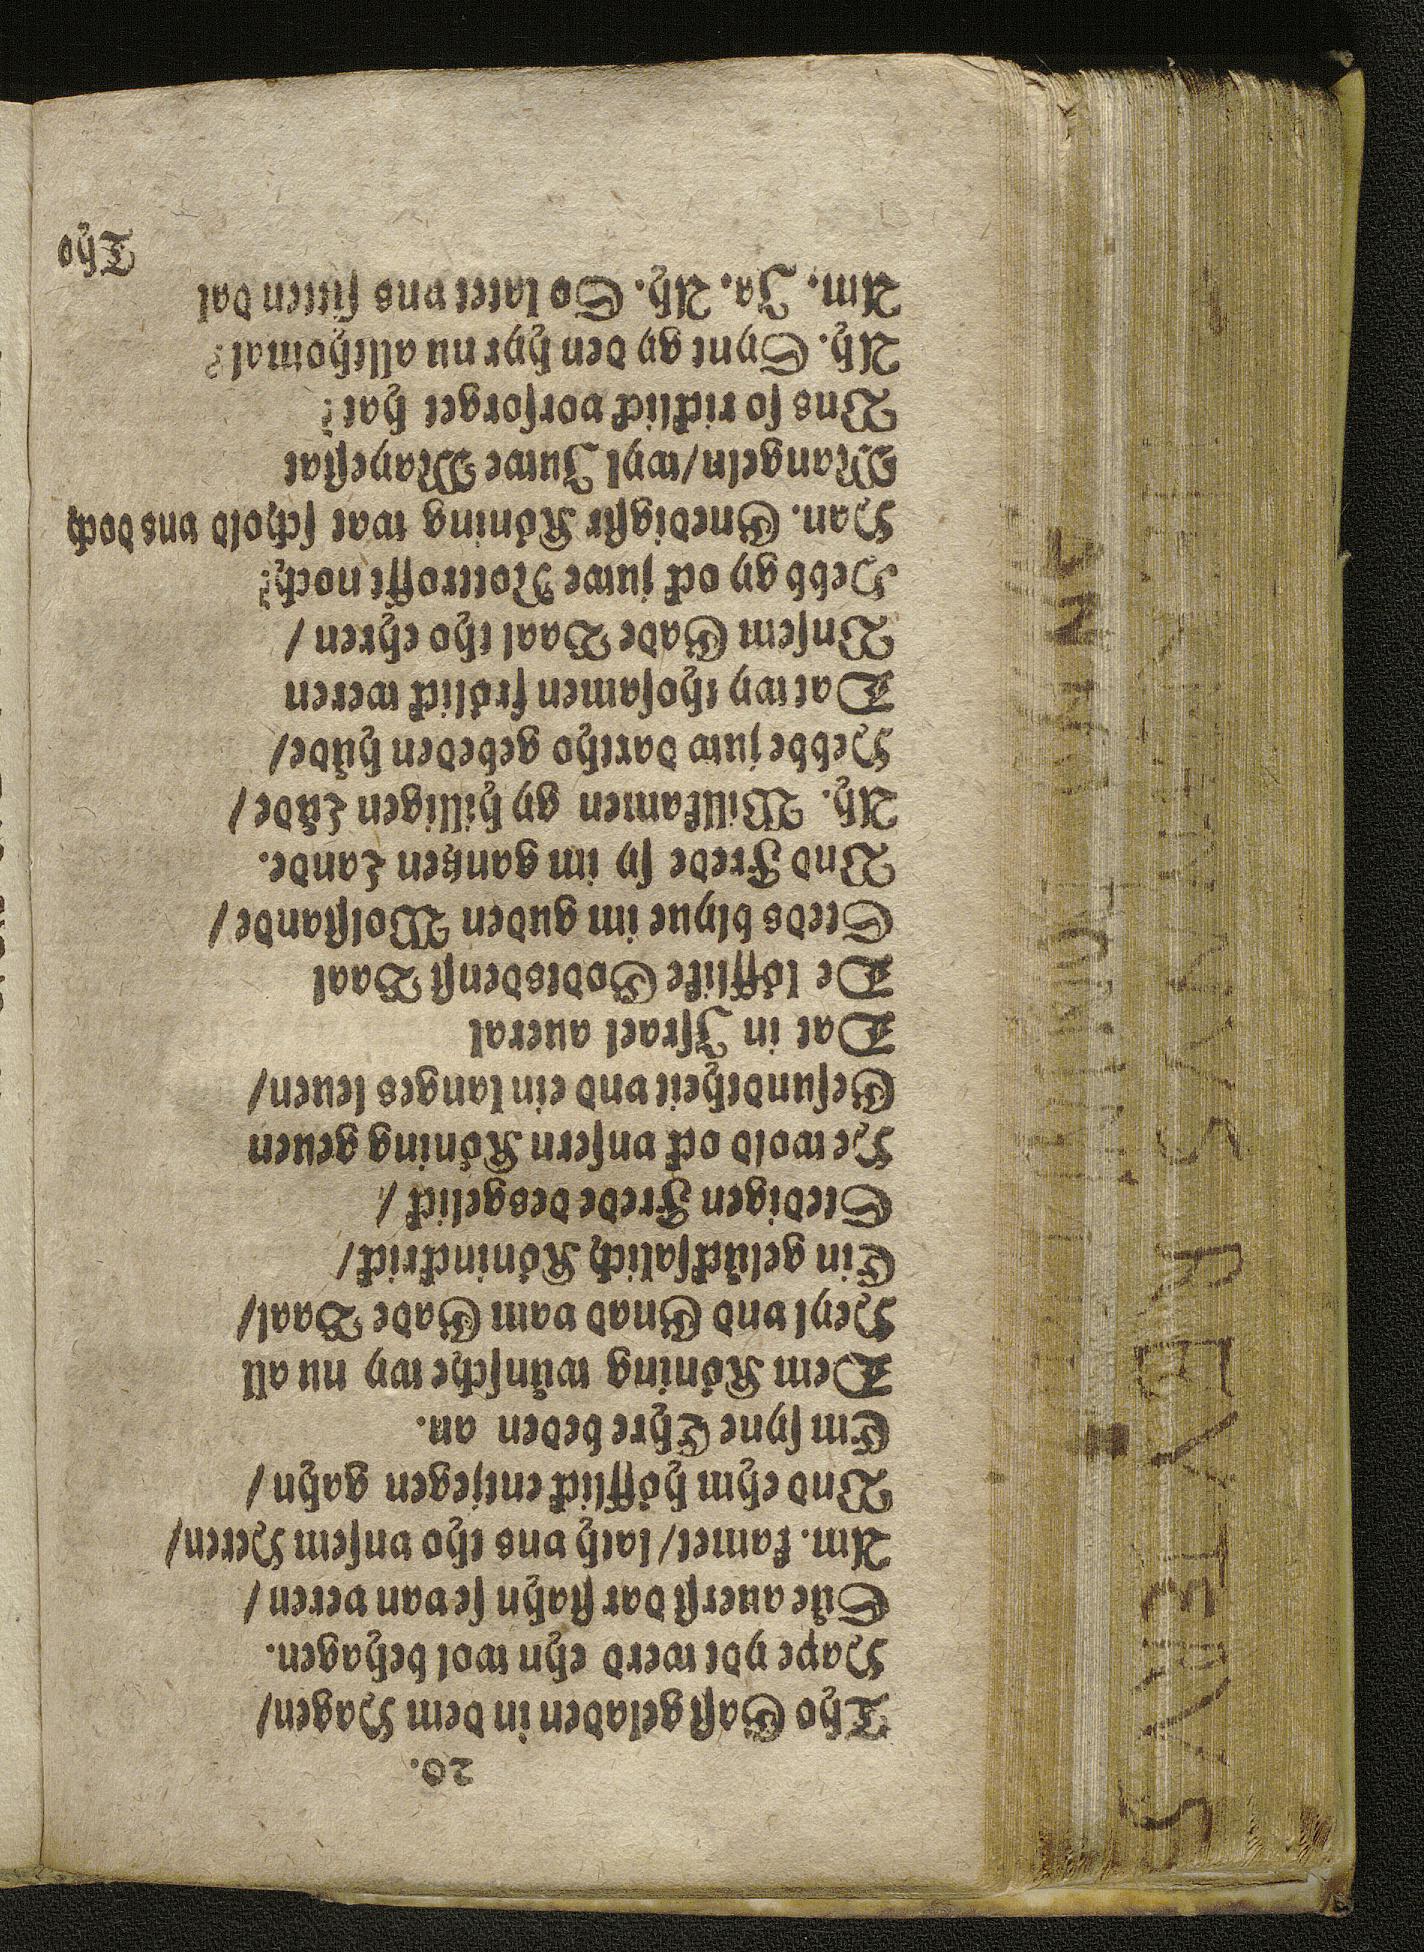 20.
Tho Gast geladen in dem Hagen/
Hape ydt werd ehn wol behagen.
Süe auerst dar stahn se van veren/
Am. kamet/ lath vns tho vnsem Heren/
Vnd ehm höfflick entjegen gahn/
Em syne Ehre beden an.
Dem Köning wünsche wy nu all
Heyl vnd Gnad vam Gade Baal/
Ein gelücksalich Köninckrick/
Stedigen Frede desgelick/
He wold ock vnsern Köning geuen
Gesundtheit vnd ein langes leuen/
Dat in Israel aueral
De löfflike Godtsdenst Baal
Steds blyue im guden Wolstande/
Vnd Frede sy im gantzen Lande.
Ah. Willkamen gy hilligen Lüde/
Hebbe juw dartho gebeden hüde/
Dat wy thosamen frölick weren
Vnsem Gade Baal tho ehren/
Hebb gy ock juwe Nottrofft noch?
Han. Gnedigstr Köning wat schold vns doch
Mangeln/ wyl Juwe Mayestat
Vns so ricklick vorsorget hat?
Ah. Synt gy den hyr nu allthomal?
Am. Ja. Ah. So latet vns sitten dal
Tho